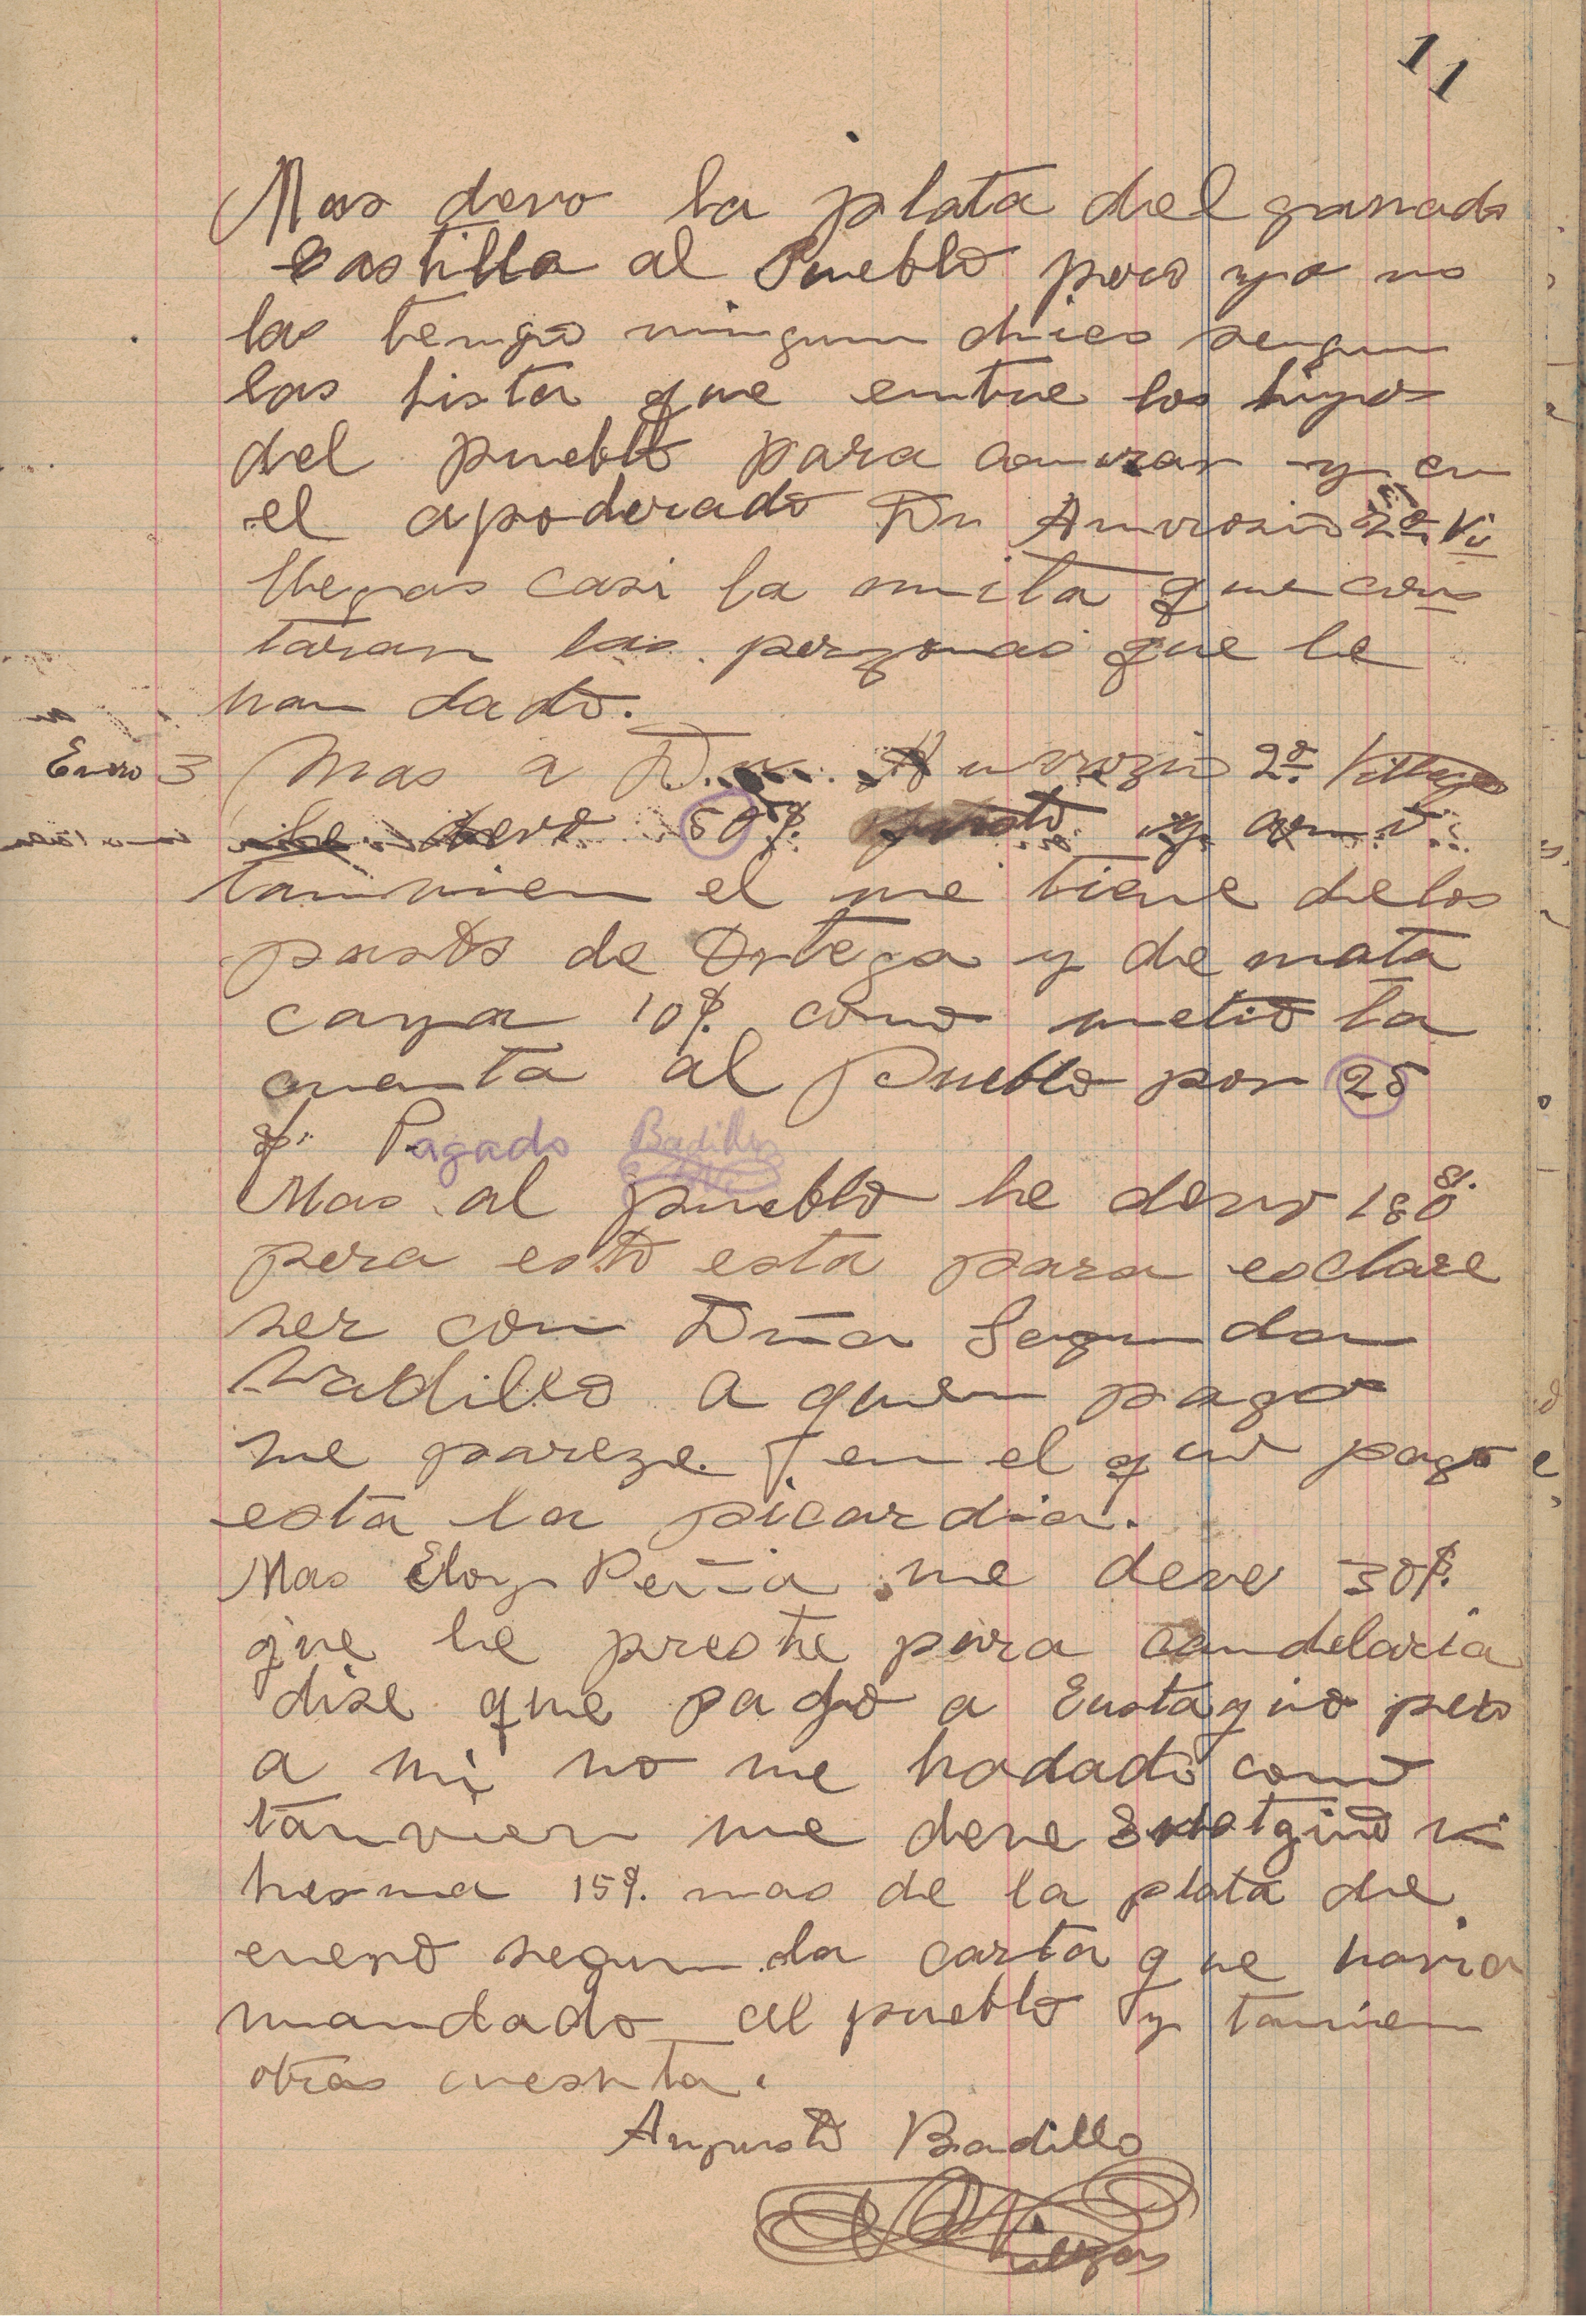 11
Mas devo la plata del ganado
Castilla al Pueblo pero yo no
las tengo ningun chico segun
las lista que entre los hijos
del pueblo para covrar y en
el apoderado Dn Amvrosio 2º Vi
llegas casi la mita que cons
taran las perzonas que le
han dado.
Enero 3 Mas a Dn. Amvrozio 2º. Villegas
le devo 50 $. y ami
tamvien el me tiene de los
pasto de Ortega y de mata
caya 10$. como metio la
cuenta al Pueblo por 25
$. Pagado Badillo
Mas al pueblo he devo 180 $.
pera esto esta para esclare
ser con Dña Segunda
Vadillo a quien pago
me pareze. y en el quio pago
esta la picardia.
Mas Eloy Peña me deve 30$.
que le preste para candelaria
dise que pago a Eustaquio pero
a mi no me hadado como
tanvien me deve Eustaquio vi
hesma 15$. mas de la plata de
enero segun la carta que havia
mandado al pueblo y tamvien
otras cuesnta.
Augusto Badillo
Villegas